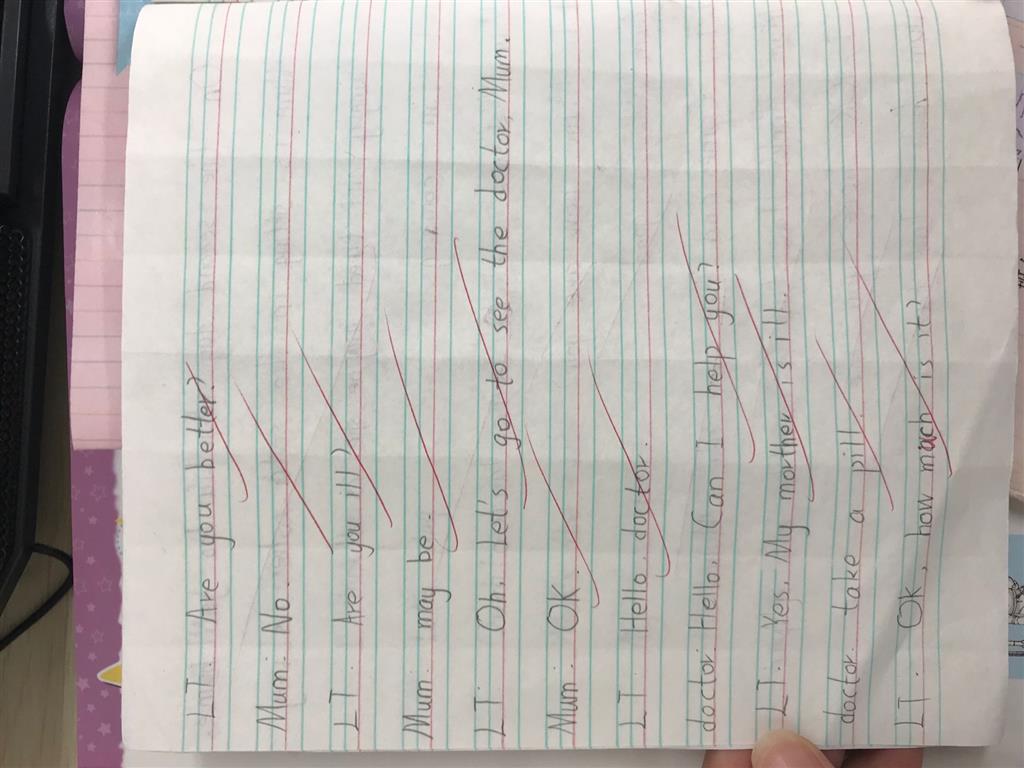 LT: Are you better?
Mum: No.
LT: Are you ill?
Mum: may be.
LT: Oh, Let's go to see the doctor, Mum.
Mum: OK.
LT: Hello, doctor.
doctor: Hello, Can I help you?
LT: Yes, My morther is ill.
doctor: take a pill.
LT: OK, how mach is it?